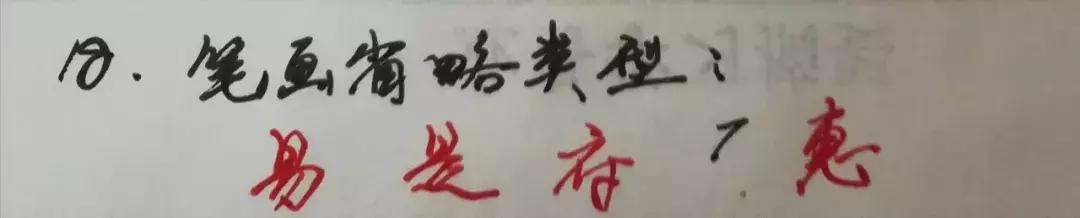 18. 笔画省略类型:
易 是 府 惠